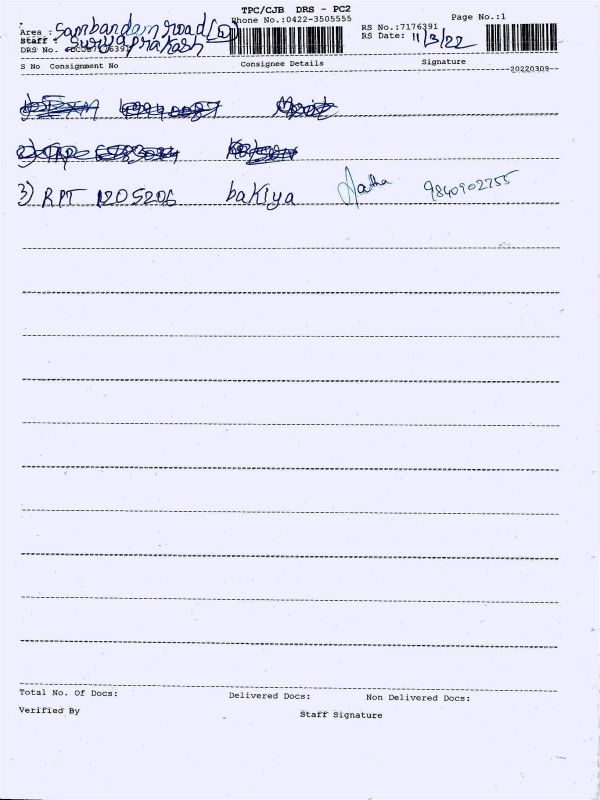 TPC/CJB DRS - PC2
Phone No.:0422-3505555 Page No.:1
Area : Sambandam road
RS No.:7176391
Staff : Suryaprakash
RS Date: 11/3/22
DRS No.
S No Consignment No Consignee Details Signature
20220309
3) RPT 1205206 bakiya 9840902755
Total No. Of Docs: Delivered Docs: Non Delivered Docs:
Verified By Staff Signature